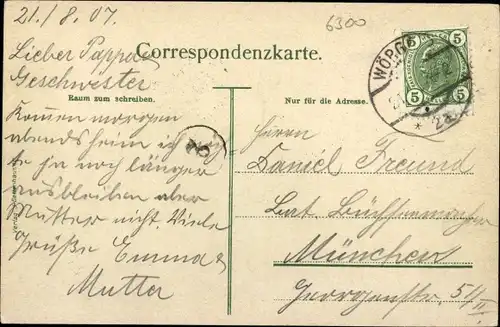 21./8.07.
6300
Lieber Pappa u
Geschwester
Correspondenzkarte.
5 5
5 5
WÖRGL
Raum zum schreiben.
Nur für die Adresse.
Komen morgen
abends heim ich
te ja noch länger
ausbleiben aber
Mutter nicht. Viele
Grüße Emma &
Mutter
Herrn
Daniel Freund
Büchsenmacher
München
Georgenstr. 54/II